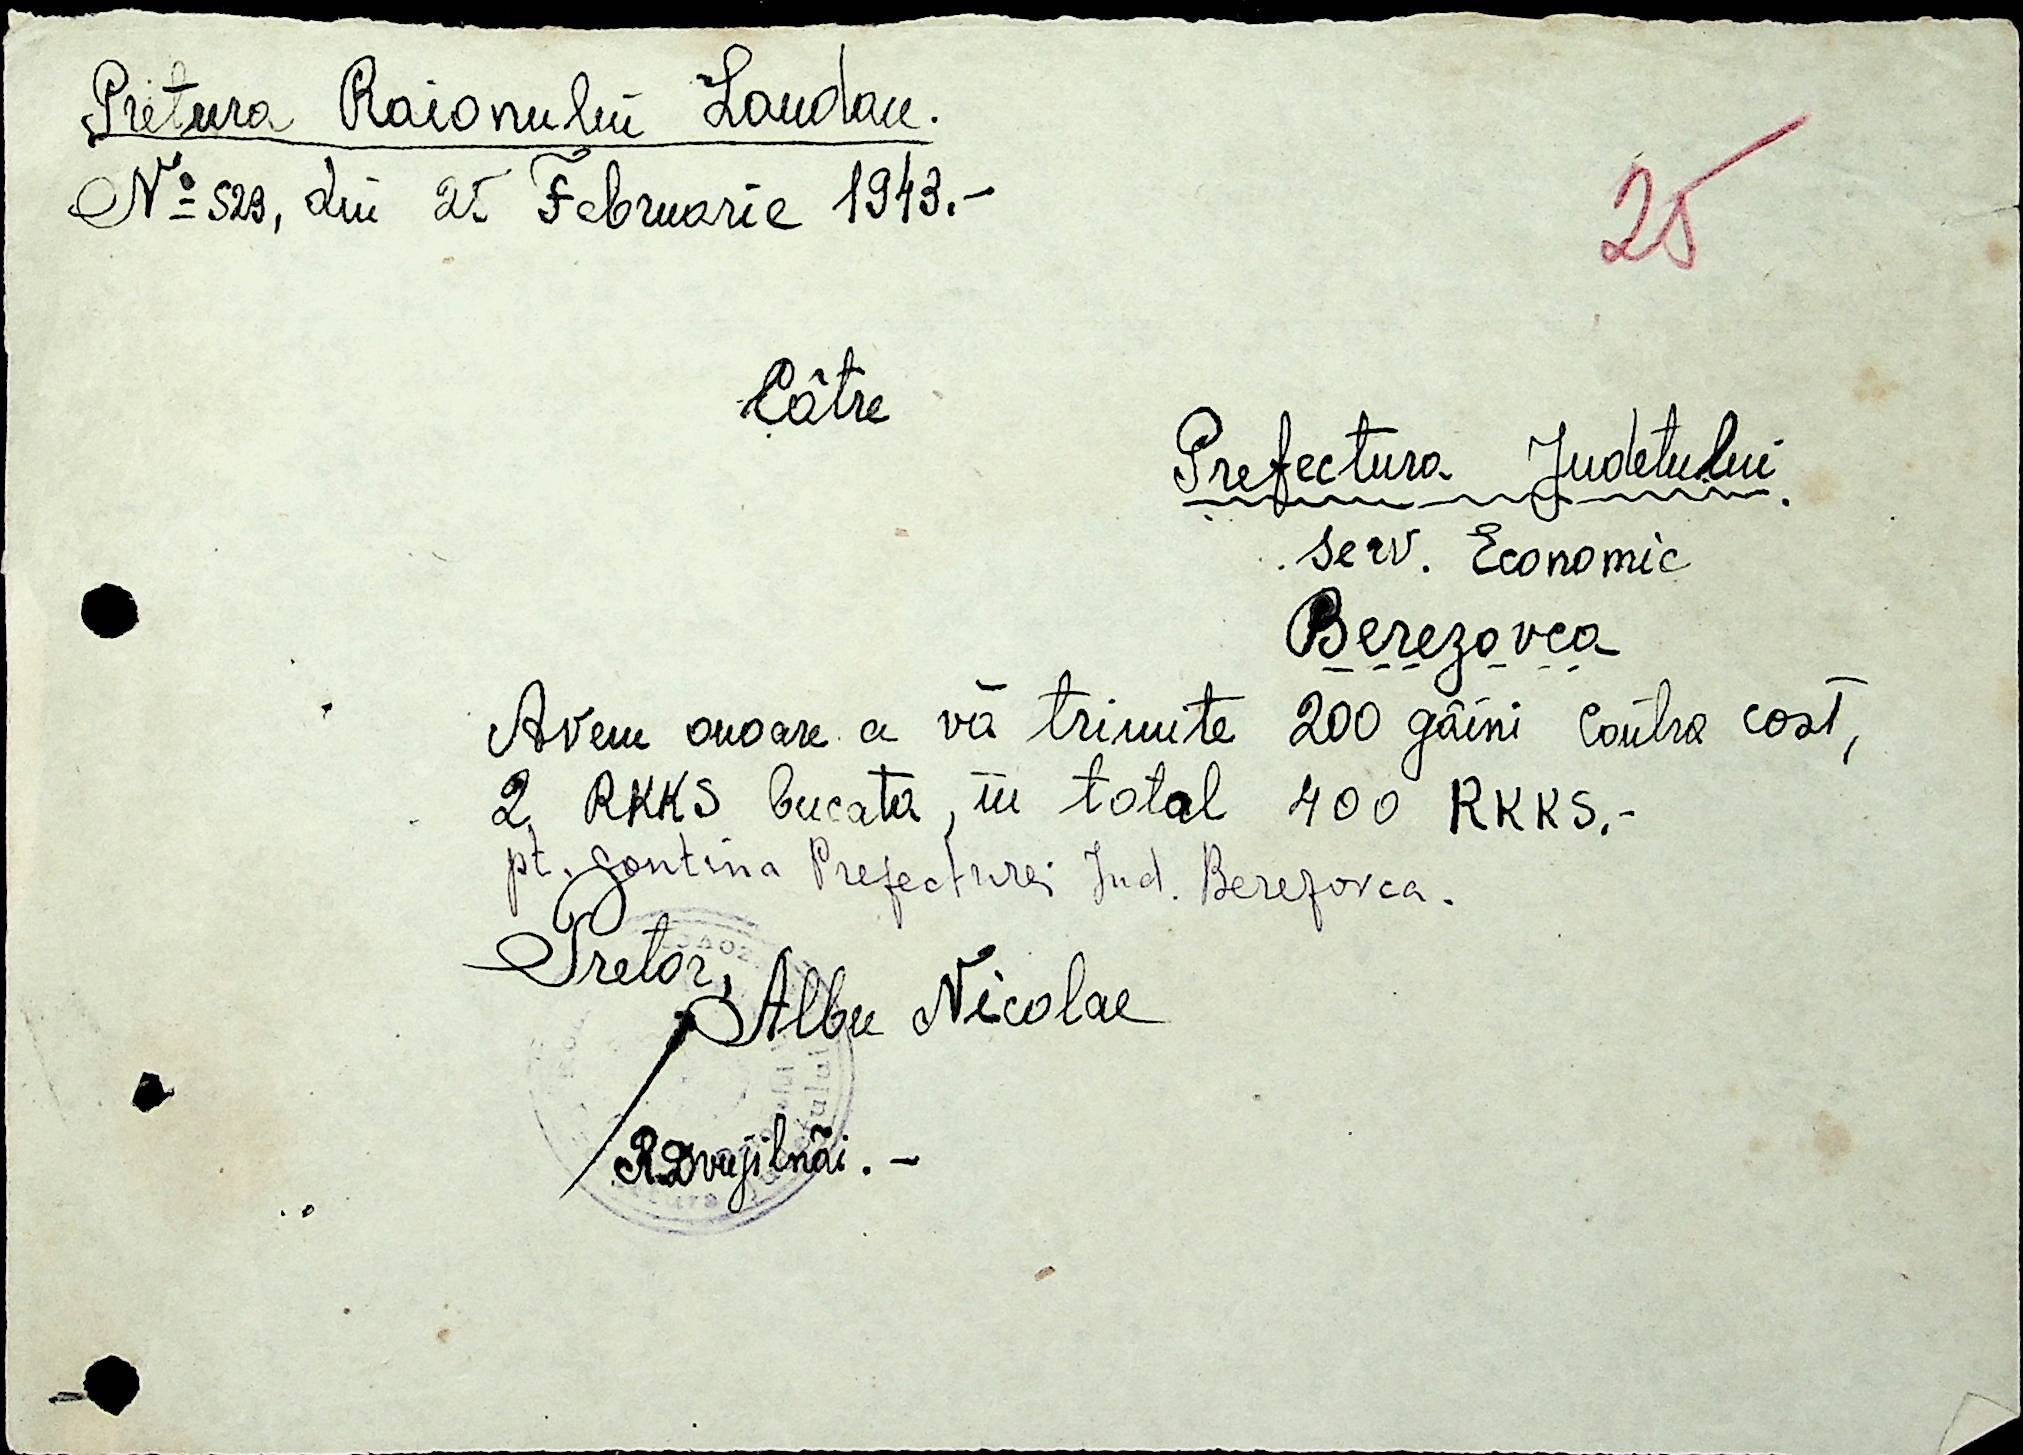 Pretura Raionului Landau.
No 523, din 25 Februarie 1943.-
25
Către
Prefectura Judetului.
Serv. Economic
Berezovca
Avem onoare a vă trimite 200 găini contra cost,
2 RKKS bucata, în total 400 RKKS.-
pt. gantina Prefecturei Jud. Berezovca.
Pretor,
Albu Nicolae
R. Dvujilnăi.-